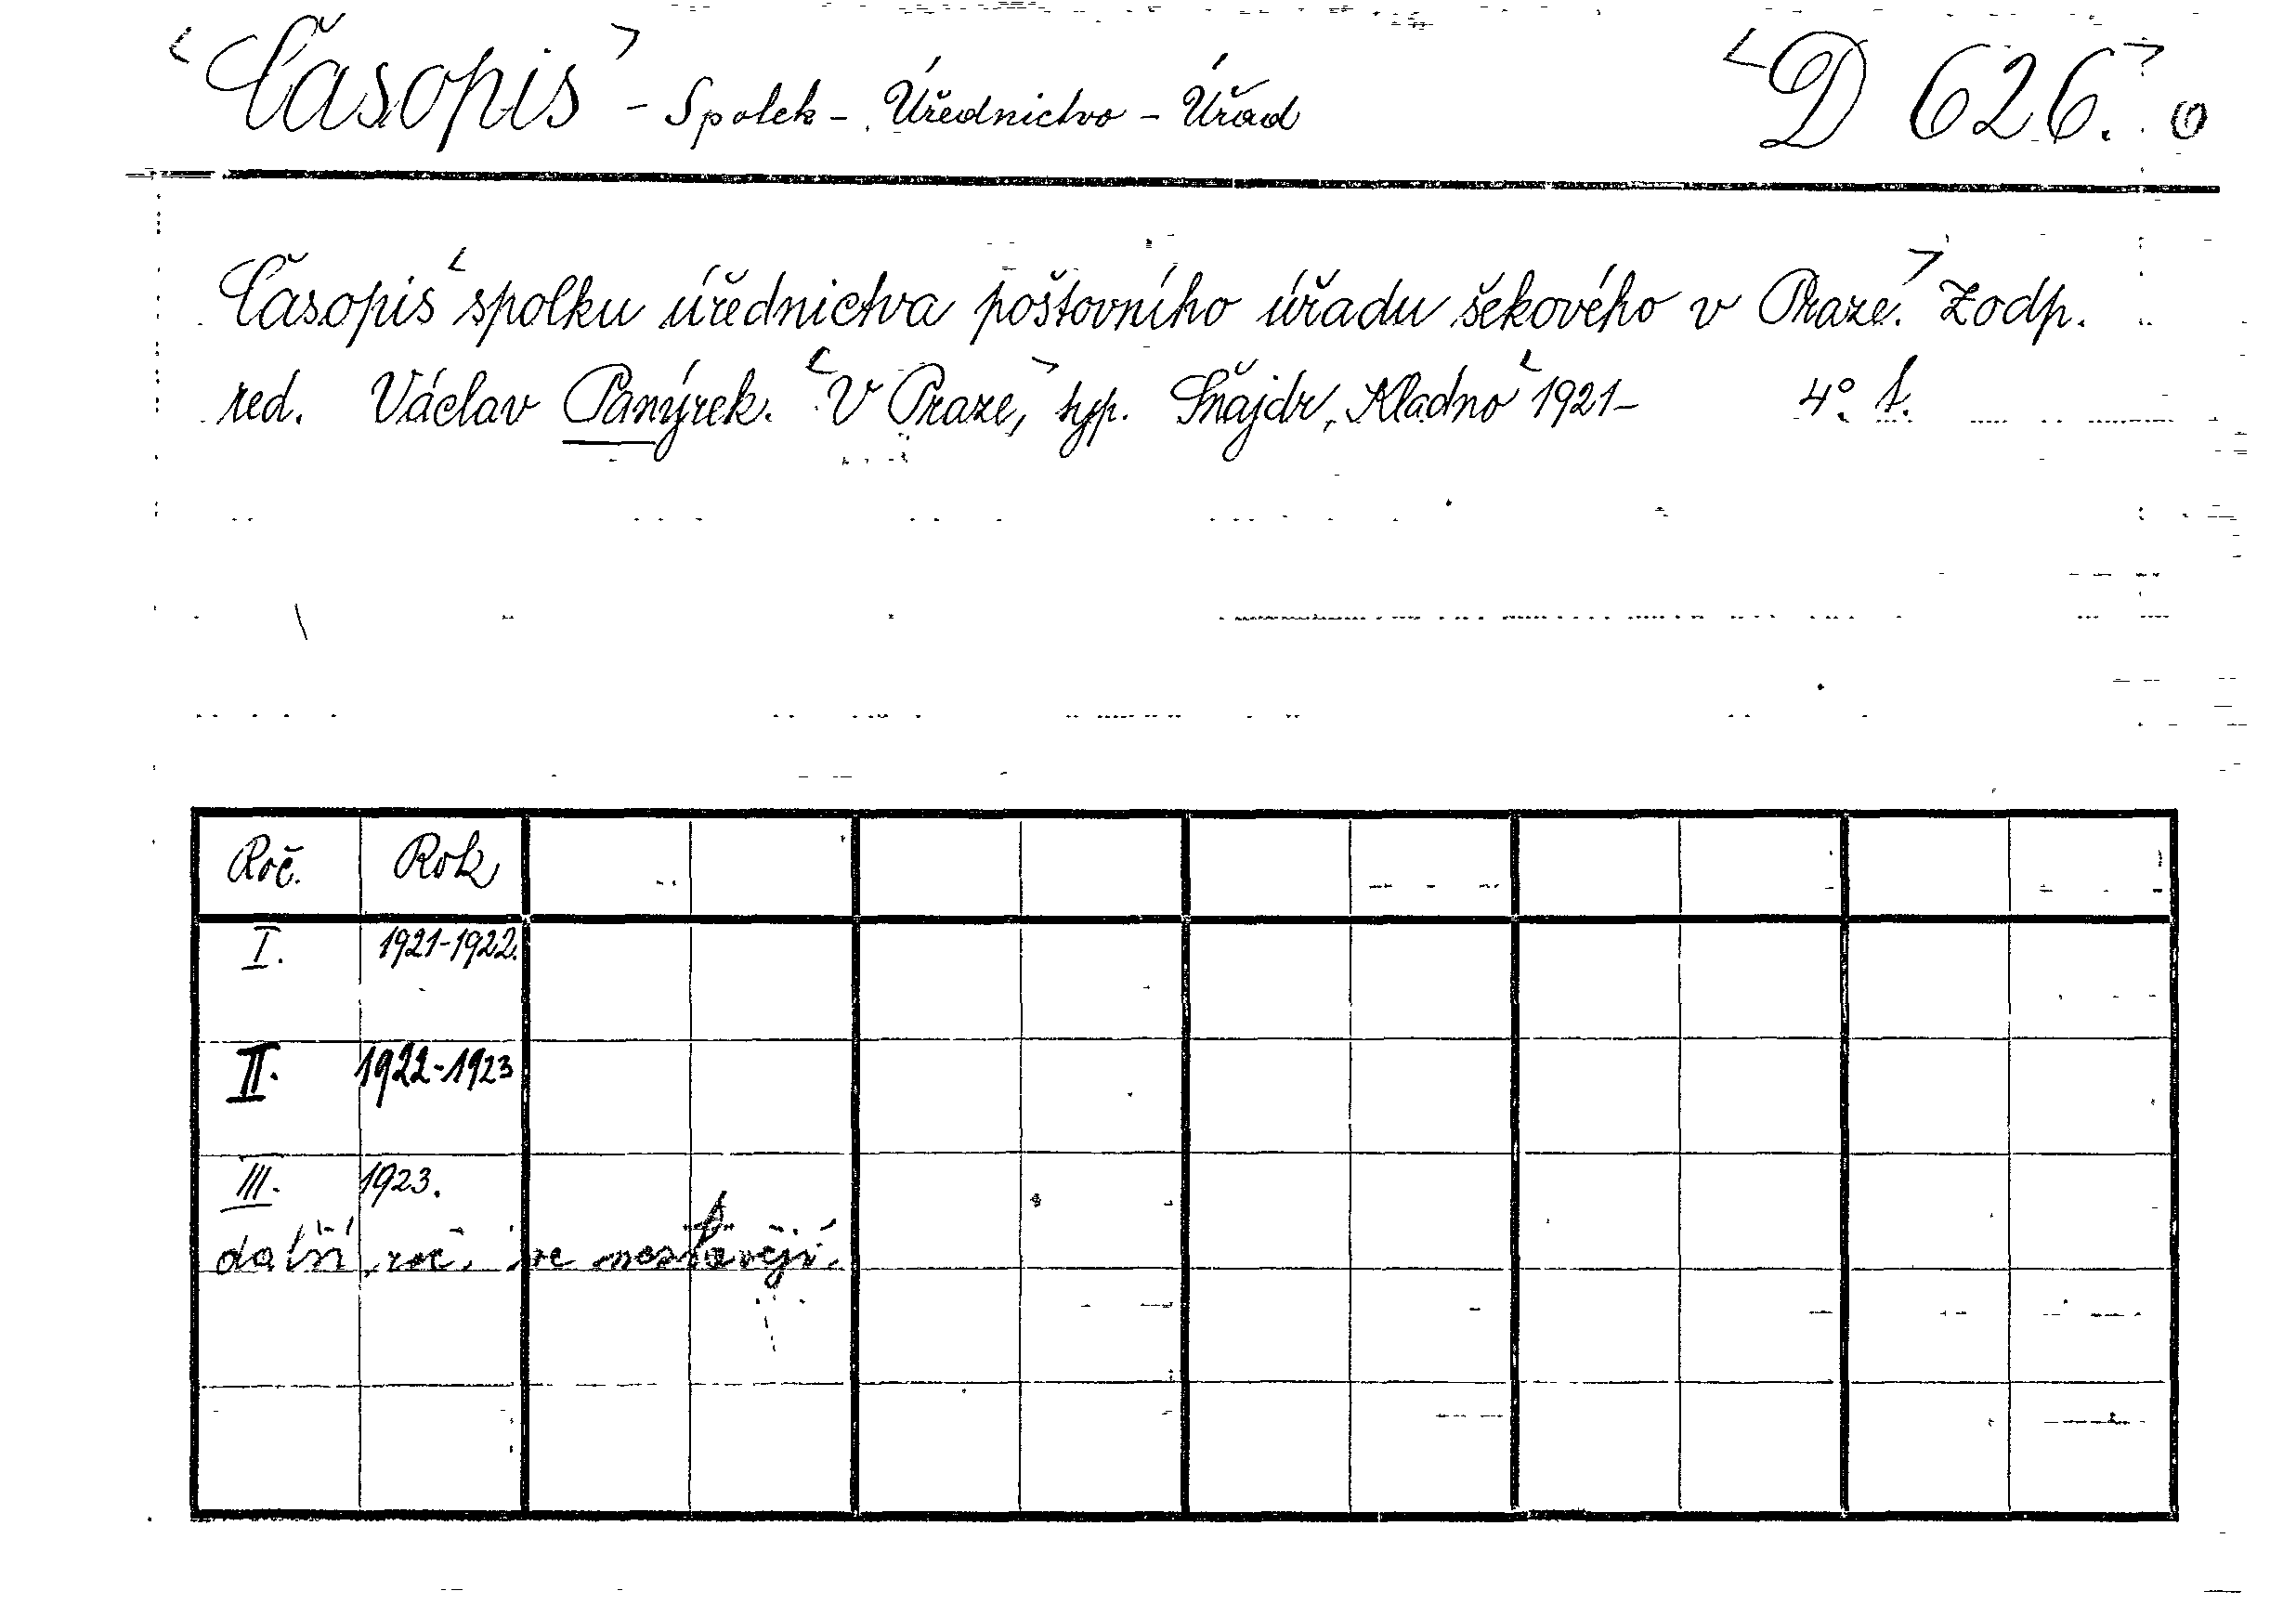 Časopis - Spolek - Úřednictvo - Úřad D 626.
Časopis spolku úřednictva poštovního úřadu šekového v Praze. Zodp.
red. Václav Panýrek. V Praze, typ. Šnajdr, Kladno 1921- 4°.
Roč. Rok
I. 1921-1922.
II. 1922-1923
III. 1923.
další roč. se nestavějí.